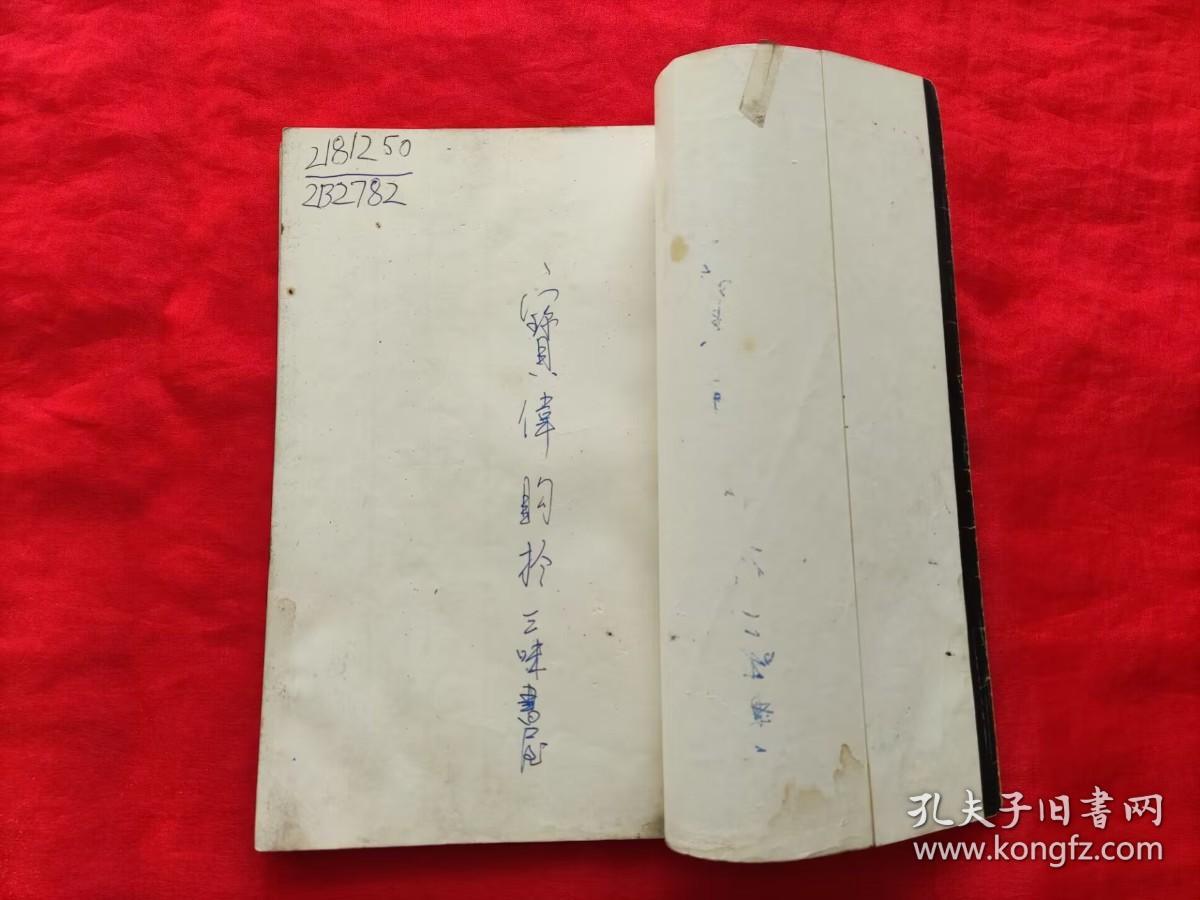 2181250
2132782
寶偉購於三味書屋
孔夫子旧书网
www.kongfz.com